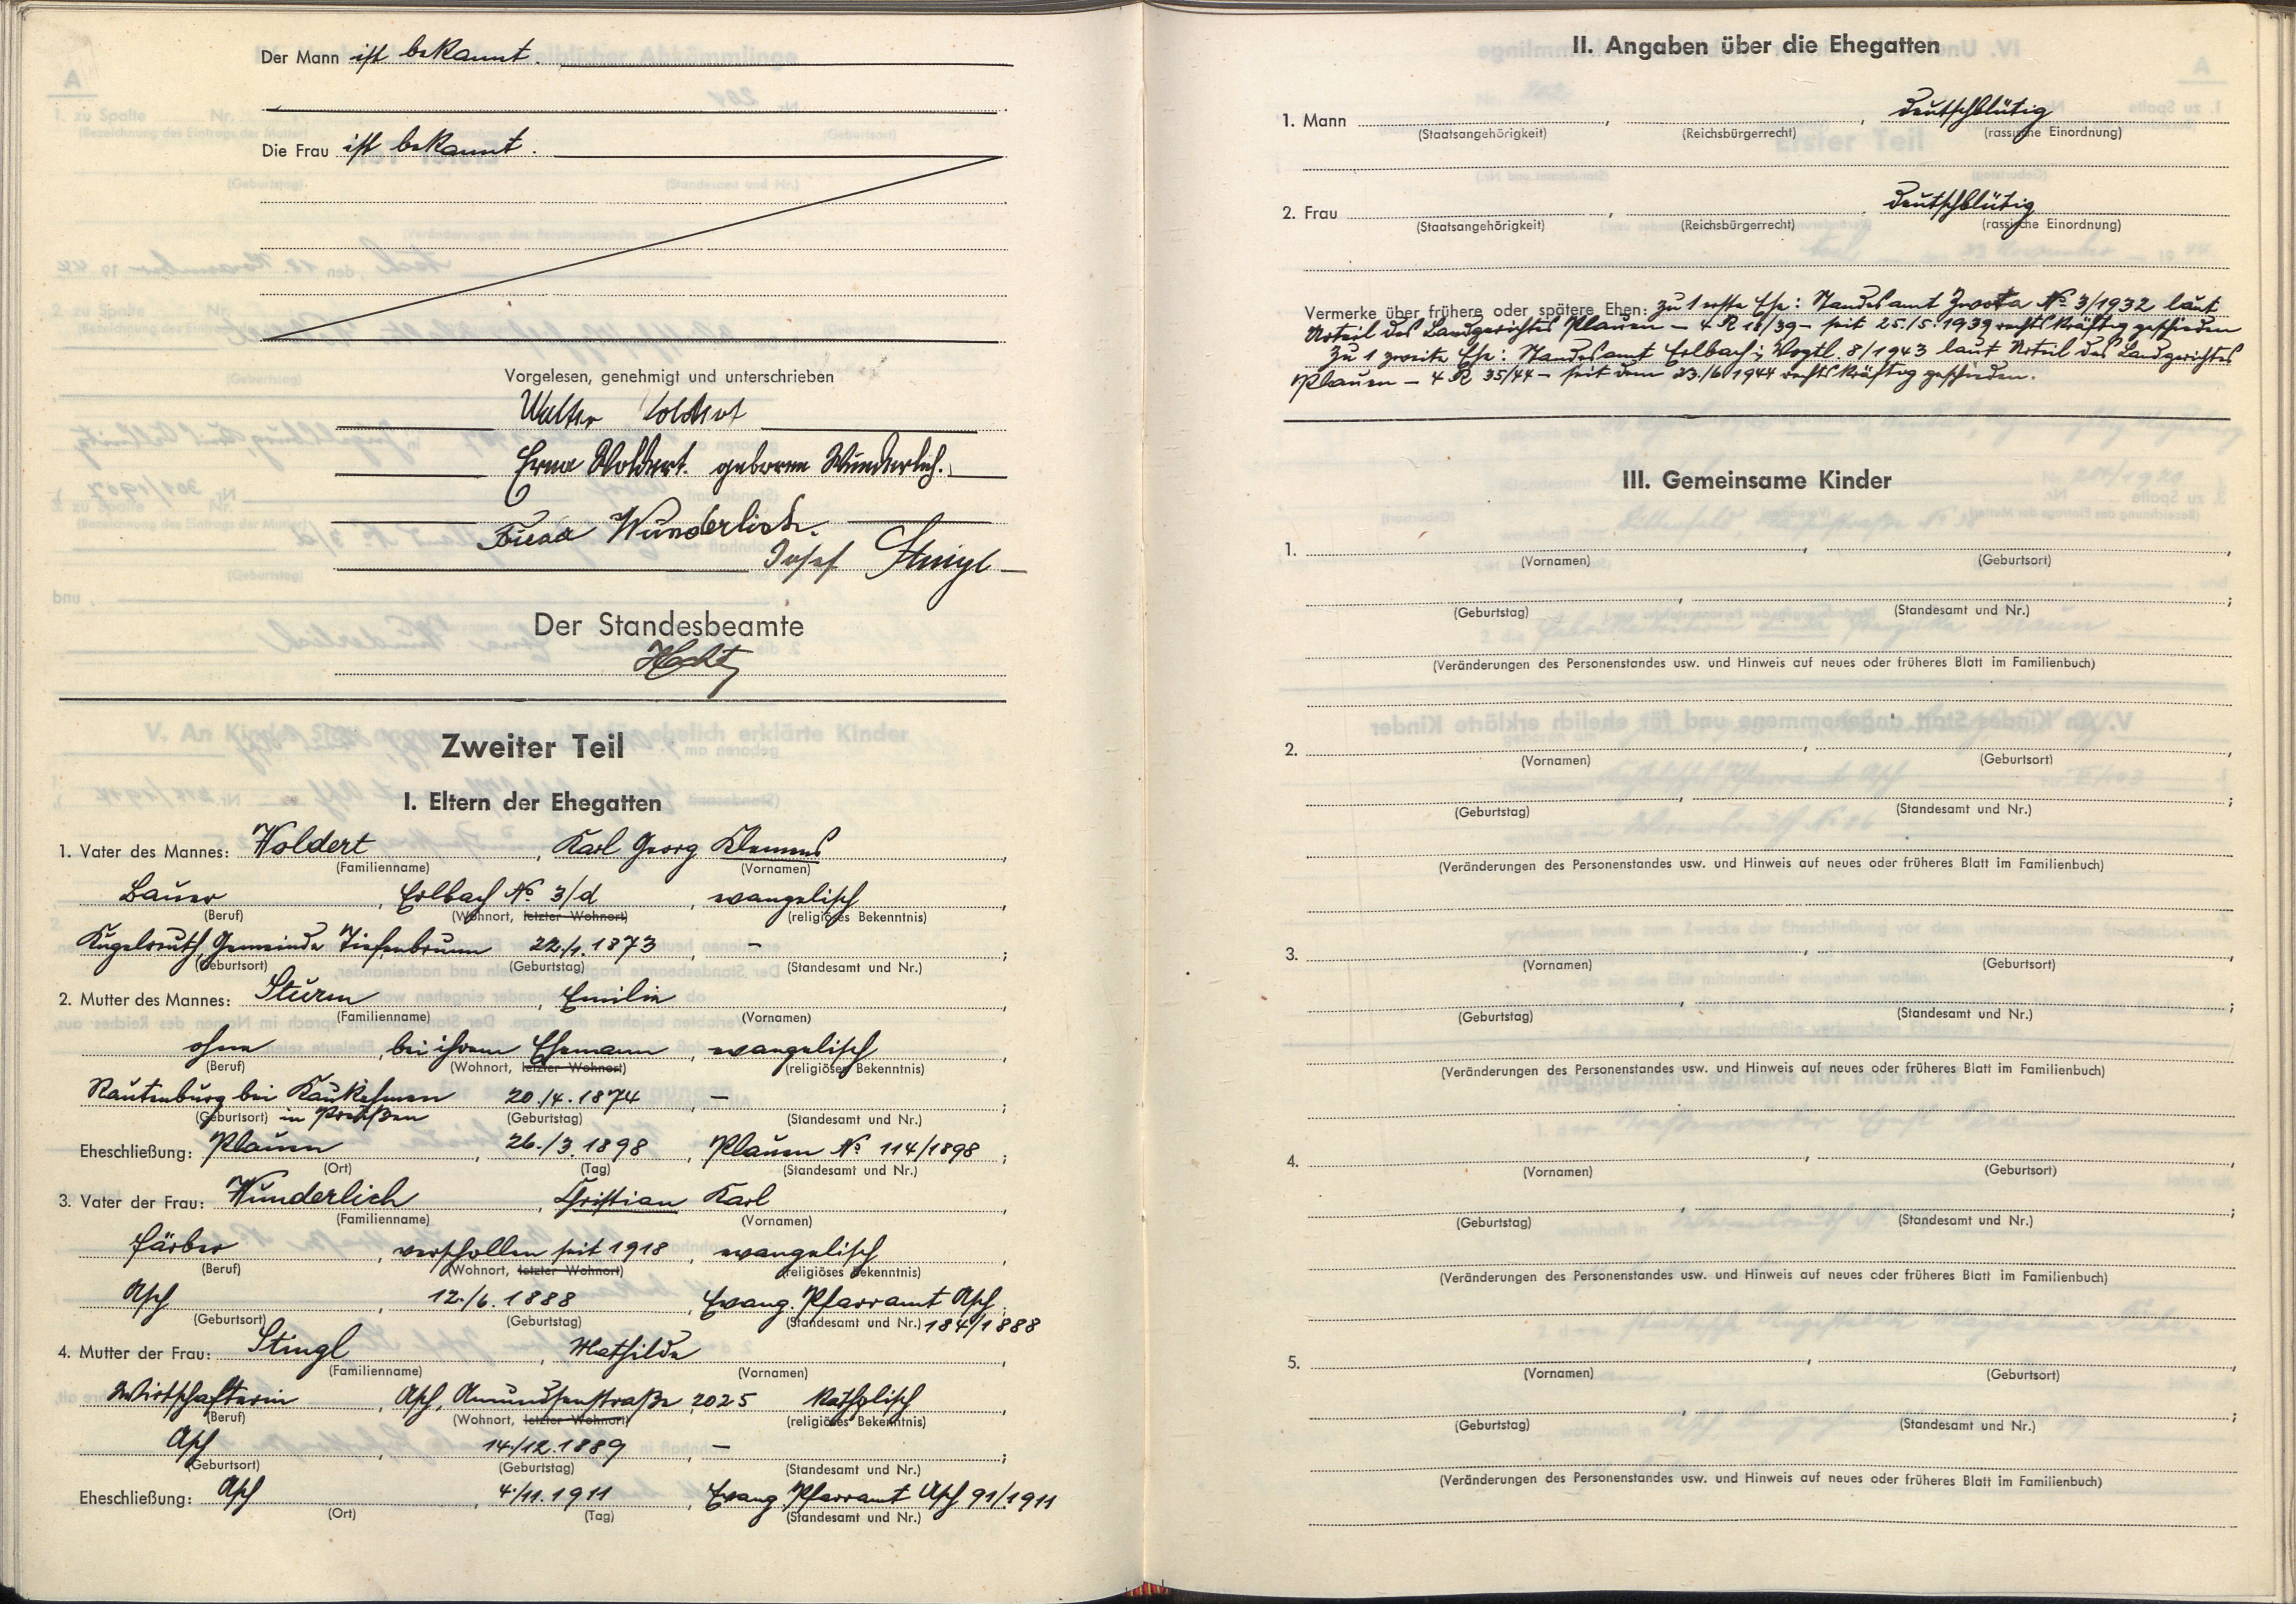 Der Mann ist bekannt.
Die Frau ist bekannt.
Vorgelesen, genehmigt und unterschrieben
Walter Woldert
Erna Woldert. geborene Wunderlich.
Wunderlich.
Josef Stingl
Der Standesbeamte
Zweiter Teil
I. Eltern der Ehegatten
1. Vater des Mannes: Woldert, Karl Georg Klemens,
(Familienname) (Vornamen)
Bauer, Erlbach No 3/d, evangelisch,
(Beruf) (Wohnort, letzter Wohnort) (religiöses Bekenntnis)
Kugelreuth, Gemeinde Tiefenbrunn 22./1. 1873, – ;
(Geburtsort) (Geburtstag) (Standesamt und Nr.)
2. Mutter des Mannes: Sturm, Emilie,
(Familienname) (Vornamen)
ohne, bei ihrem Ehemann, evangelisch,
(Beruf) (Wohnort, letzter Wohnort) (religiöses Bekenntnis)
Rautenburg bei Kaukehmen 20./4. 1874, – ;
(Geburtsort) in Preußen (Geburtstag) (Standesamt und Nr.)
Eheschließung: Plauen, 26./3. 1898, Plauen No 114/1898;
(Ort) (Tag) (Standesamt und Nr.)
3. Vater der Frau: Wunderlich, Christian Karl,
(Familienname) (Vornamen)
Färber, verschollen seit 1918, evangelisch,
(Beruf) (Wohnort, letzter Wohnort) (religiöses Bekenntnis)
Asch, 12./6. 1888, Evang. Pfarramt Asch;
(Geburtsort) (Geburtstag) (Standesamt und Nr.) 184/1888
4. Mutter der Frau: Stingl, Mathilde,
(Familienname) (Vornamen)
Wirtschafterin, Asch, Amundsenstraße 2025 katholisch,
(Beruf) (Wohnort, letzter Wohnort) (religiöses Bekenntnis)
Asch, 14./12. 1889, – ;
(Geburtsort) (Geburtstag) (Standesamt und Nr.)
Eheschließung: Asch, 4./11. 1911, Evang. Pfarramt Asch 91/1911
(Ort) (Tag) (Standesamt und Nr.)
II. Angaben über die Ehegatten
1. Mann , , deutschblütig
(Staatsangehörigkeit) (Reichsbürgerrecht) (rassische Einordnung)
2. Frau , . deutschblütig
(Staatsangehörigkeit) (Reichsbürgerrecht) (rassische Einordnung)
Vermerke über frühere oder spätere Ehen: Zu 1 erste Ehe: Standesamt Zwota No 3/1932 laut
Urteil des Landgerichtes Plauen – 4 R – seit 25./5. 1939 rechtskräftig geschieden
Zu 1 zweite Ehe: Standesamt Erlbach i. Vogtl. 8/1943 laut Urteil des Landgerichtes
Plauen – 4 R 35/44 – seit dem 23./6. 1944 rechtskräftig geschieden.
III. Gemeinsame Kinder
1. , ,
(Vornamen) (Geburtsort)
, ;
(Geburtstag) (Standesamt und Nr.)
(Veränderungen des Personenstandes usw. und Hinweis auf neues oder früheres Blatt im Familienbuch)
2. , ,
(Vornamen) (Geburtsort)
, ;
(Geburtstag) (Standesamt und Nr.)
(Veränderungen des Personenstandes usw. und Hinweis auf neues oder früheres Blatt im Familienbuch)
3. , ,
(Vornamen) (Geburtsort)
, ;
(Geburtstag) (Standesamt und Nr.)
(Veränderungen des Personenstandes usw. und Hinweis auf neues oder früheres Blatt im Familienbuch)
4. , ,
(Vornamen) (Geburtsort)
, ;
(Geburtstag) (Standesamt und Nr.)
(Veränderungen des Personenstandes usw. und Hinweis auf neues oder früheres Blatt im Familienbuch)
5. , ,
(Vornamen) (Geburtsort)
, ;
(Geburtstag) (Standesamt und Nr.)
(Veränderungen des Personenstandes usw. und Hinweis auf neues oder früheres Blatt im Familienbuch)